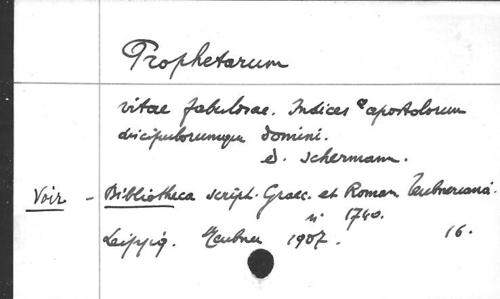 Prophetarum
vitae fabulosae. Indices apostolorum
discipulorumque Domini.
ed. Schermann.
Voir - Bibliotheca script. Graec. et Roman Teubneriana.
n° 1740.
Leipzig. Teubner 1907. 16.